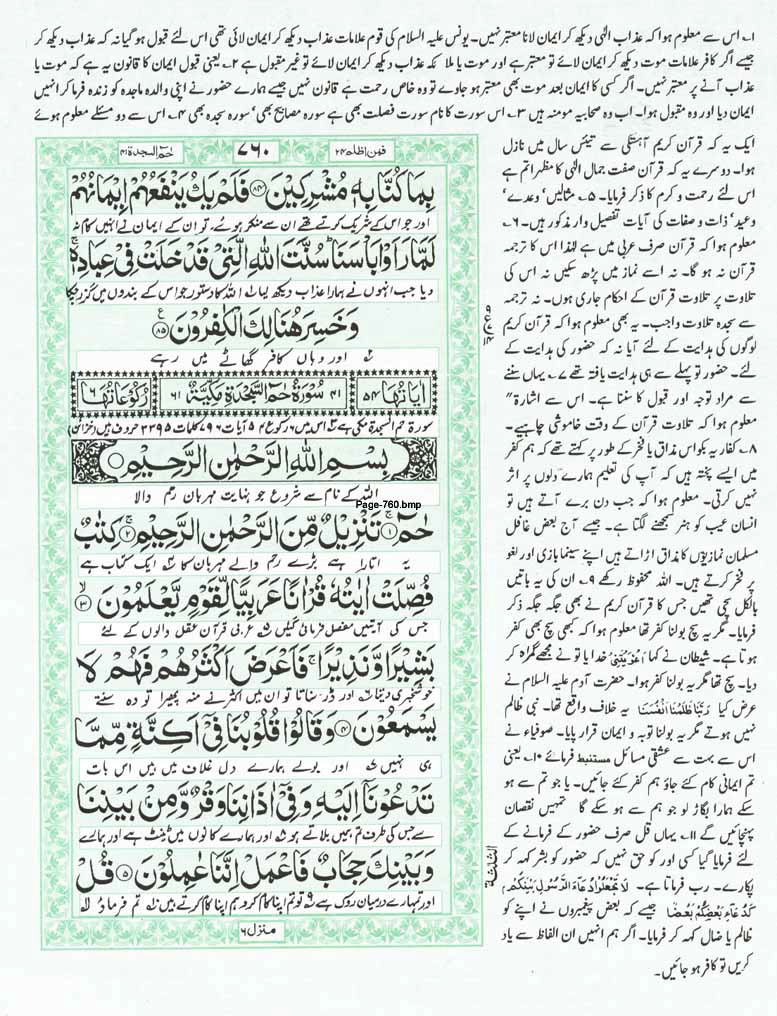 ۱؎ اس سے معلوم ہوا کہ عذاب الٰہی دیکھ کر ایمان لانا معتبر نہیں۔ یونس علیہ السلام کی قوم علامات عذاب دیکھ کر ایمان لائی تھی اس لئے قبول ہو گیا نہ کہ عذاب دیکھ کر
جیسے اگر کافر علامات موت دیکھ کر ایمان لائے تو معتبر ہے اور موت یا ملائکہ عذاب دیکھ کر ایمان لائے تو غیر مقبول ہے ۲؎ یعنی قبول ایمان کا قانون یہ ہے کہ موت یا
عذاب آنے پر معتبر نہیں۔ اگر کسی کا ایمان بعد موت بھی معتبر ہو جاوے تو وہ خاص رحمت ہے قانون نہیں جیسے ہمارے حضور نے اپنی والدہ ماجدہ کو زندہ فرما کر انہیں
ایمان دیا اور وہ مقبول ہوا۔ اب وہ صحابیہ مومنہ ہیں ۳؎ اس سورت کا نام سورت فصلت بھی ہے سورہ مصابیح بھی، سورہ سجدہ بھی ۴؎ اس سے دو مسئلے معلوم ہوئے
ایک یہ کہ قرآن کریم آہستگی سے تیئس سال میں نازل
ہوا۔ دوسرے یہ کہ قرآن صفت جمال الٰہی کا مظہر اتم ہے
اس لئے رحمت و کرم کا ذکر فرمایا۔ ۵؎ مثالیں، وعدے،
وعید، ذات و صفات کی آیات تفصیل وار مذکور ہیں۔ ۶؎
معلوم ہوا کہ قرآن صرف عربی میں ہے لہٰذا اس کا ترجمہ
قرآن نہ ہو گا۔ نہ اسے نماز میں پڑھ سکیں نہ اس کی
تلاوت پر تلاوت قرآن کے احکام جاری ہوں۔ نہ ترجمہ
سے سجدہ تلاوت واجب۔ یہ بھی معلوم ہوا کہ قرآن کریم
لوگوں کی ہدایت کے لئے آیا نہ کہ حضور کی ہدایت کے
لئے۔ حضور تو پہلے سے ہی ہدایت یافتہ تھے ۷؎ یہاں سننے
سے مراد توجہ اور قبول کا سننا ہے۔ اس سے اشارۃ"
معلوم ہوا کہ تلاوت قرآن کے وقت خاموشی چاہیے۔
۸؎ کفار یہ بکواس مذاق یا فخر کے طور پر کہتے تھے کہ ہم کفر
میں ایسے پختہ ہیں کہ آپ کی تعلیم ہمارے دلوں پر اثر
نہیں کرتی۔ معلوم ہوا کہ جب دن برے آتے ہیں تو
انسان عیب کو ہنر سمجھنے لگتا ہے۔ جیسے آج بعض غافل
مسلمان نمازیوں کا مذاق اڑاتے ہیں اپنے سینما بازی اور لغو
پر فخر کرتے ہیں۔ اللہ محفوظ رکھے ۹؎ ان کی یہ باتیں
بالکل سچی تھیں جس کا قرآن کریم نے بھی جگہ جگہ ذکر
فرمایا۔ مگر یہ سچ بولنا کفر تھا معلوم ہوا کہ کبھی سچ بھی کفر
ہوتا ہے۔ شیطان نے کہا اَغْوَيْتَنِيْ خدایا تو نے مجھے گمراہ کر
دیا۔ سچ تھا مگر یہ بولنا کفر ہوا۔ حضرت آدم علیہ السلام نے
عرض کیا رَبَّنَا ظَلَمْنَا اَنْفُسَنَا یہ خلاف واقع تھا۔ نبی ظالم
نہیں ہوتے مگر یہ بولنا توبہ و ایمان قرار پایا۔ صوفیاء نے
اس سے بہت سے عشقی مسائل مستنبط فرمائے ۱۰؎ یعنی
تم ایمانی کام کئے جاؤ ہم کفر کئے جائیں۔ یا جو تم سے ہو
سکے ہمارا بگاڑ لو جو ہم سے ہو سکے گا تمہیں نقصان
پہنچائیں گے ۱۱؎ یہاں قل صرف حضور کے فرمانے کے
لئے فرمایا گیا کسی اور کو حق نہیں کہ حضور کو بشر کہہ کر
پکارے۔ رب فرماتا ہے۔ لَا تَجْعَلُوْا دُعَاءَ الرَّسُوْلِ بَيْنَكُمْ
كَدُعَاءِ بَعْضِكُمْ بَعْضًا جیسے کہ بعض پیغمبروں نے اپنے کو
ظالم یا ضال کہہ کر فرمایا۔ اگر ہم انہیں ان الفاظ سے یاد
کریں تو کافر ہو جائیں۔
فمن اظلم ۲۴
۷۶۰
حٰمٓ السجدة ۴۱
بِمَا كُنَّا بِهٖ مُشْرِكِيْنَ ۸۴ فَلَمْ يَكُ يَنْفَعُهُمْ اِيْمَانُهُمْ
اور جو اس کے شریک کرتے تھے ان سے منکر ہوئے، تو ان کے ایمان نے انہیں کام نہ
لَمَّا رَاَوْا بَاْسَنَا سُنَّتَ اللّٰهِ الَّتِيْ قَدْ خَلَتْ فِيْ عِبَادِهٖ
دیا جب انہوں نے ہمارا عذاب دیکھ لیا اللہ کا دستور جو اس کے بندوں میں گزر چکا
وَخَسِرَ هُنَالِكَ الْكٰفِرُوْنَ ۸۵
اور وہاں کافر گھاٹے میں رہے
اٰيَاتُهَا ۵۴
۴۱ سُوْرَةُ حٰمٓ السَّجْدَةِ مَكِّيَّةٌ ۶۱
رُكُوْعَاتُهَا ۶
سورة حم السجدة مکی ہے اس میں ۶ رکوع ۵۴ آیات ۷۹۶ کلمات ۳۳۹۵ حروف ہیں (خزائن)
بِسْمِ اللّٰهِ الرَّحْمٰنِ الرَّحِيْمِ
اللہ کے نام سے شروع جو نہایت مہربان رحم والا
Page-760.bmp
حٰمٓ ۱ تَنْزِيْلٌ مِّنَ الرَّحْمٰنِ الرَّحِيْمِ ۲ كِتٰبٌ
یہ اتارا ہے بڑے رحم والے مہربان کا ایک کتاب ہے
فُصِّلَتْ اٰيٰتُهٗ قُرْاٰنًا عَرَبِيًّا لِّقَوْمٍ يَّعْلَمُوْنَ ۳
جس کی آیتیں مفصل فرمائی گئیں عربی قرآن عقل والوں کے لئے
بَشِيْرًا وَّنَذِيْرًا فَاَعْرَضَ اَكْثَرُهُمْ فَهُمْ لَا
خوشخبری دیتا اور ڈر سناتا تو ان میں اکثر نے منہ پھیرا تو وہ سنتے
يَسْمَعُوْنَ ۴ وَقَالُوْا قُلُوْبُنَا فِيْ اَكِنَّةٍ مِّمَّا
ہی نہیں اور بولے ہمارے دل غلاف میں ہیں اس بات
تَدْعُوْنَا اِلَيْهِ وَفِيْ اٰذَانِنَا وَقْرٌ وَّمِنْ بَيْنِنَا
سے جس کی طرف تم ہمیں بلاتے ہو اور ہمارے کانوں میں ٹینٹ ہے اور ہمارے
وَبَيْنِكَ حِجَابٌ فَاعْمَلْ اِنَّنَا عٰمِلُوْنَ ۵ قُلْ
اور تمہارے درمیان روک ہے تو تم اپنا کام کرو ہم اپنا کام کرتے ہیں تم فرماؤ
منزل ۶